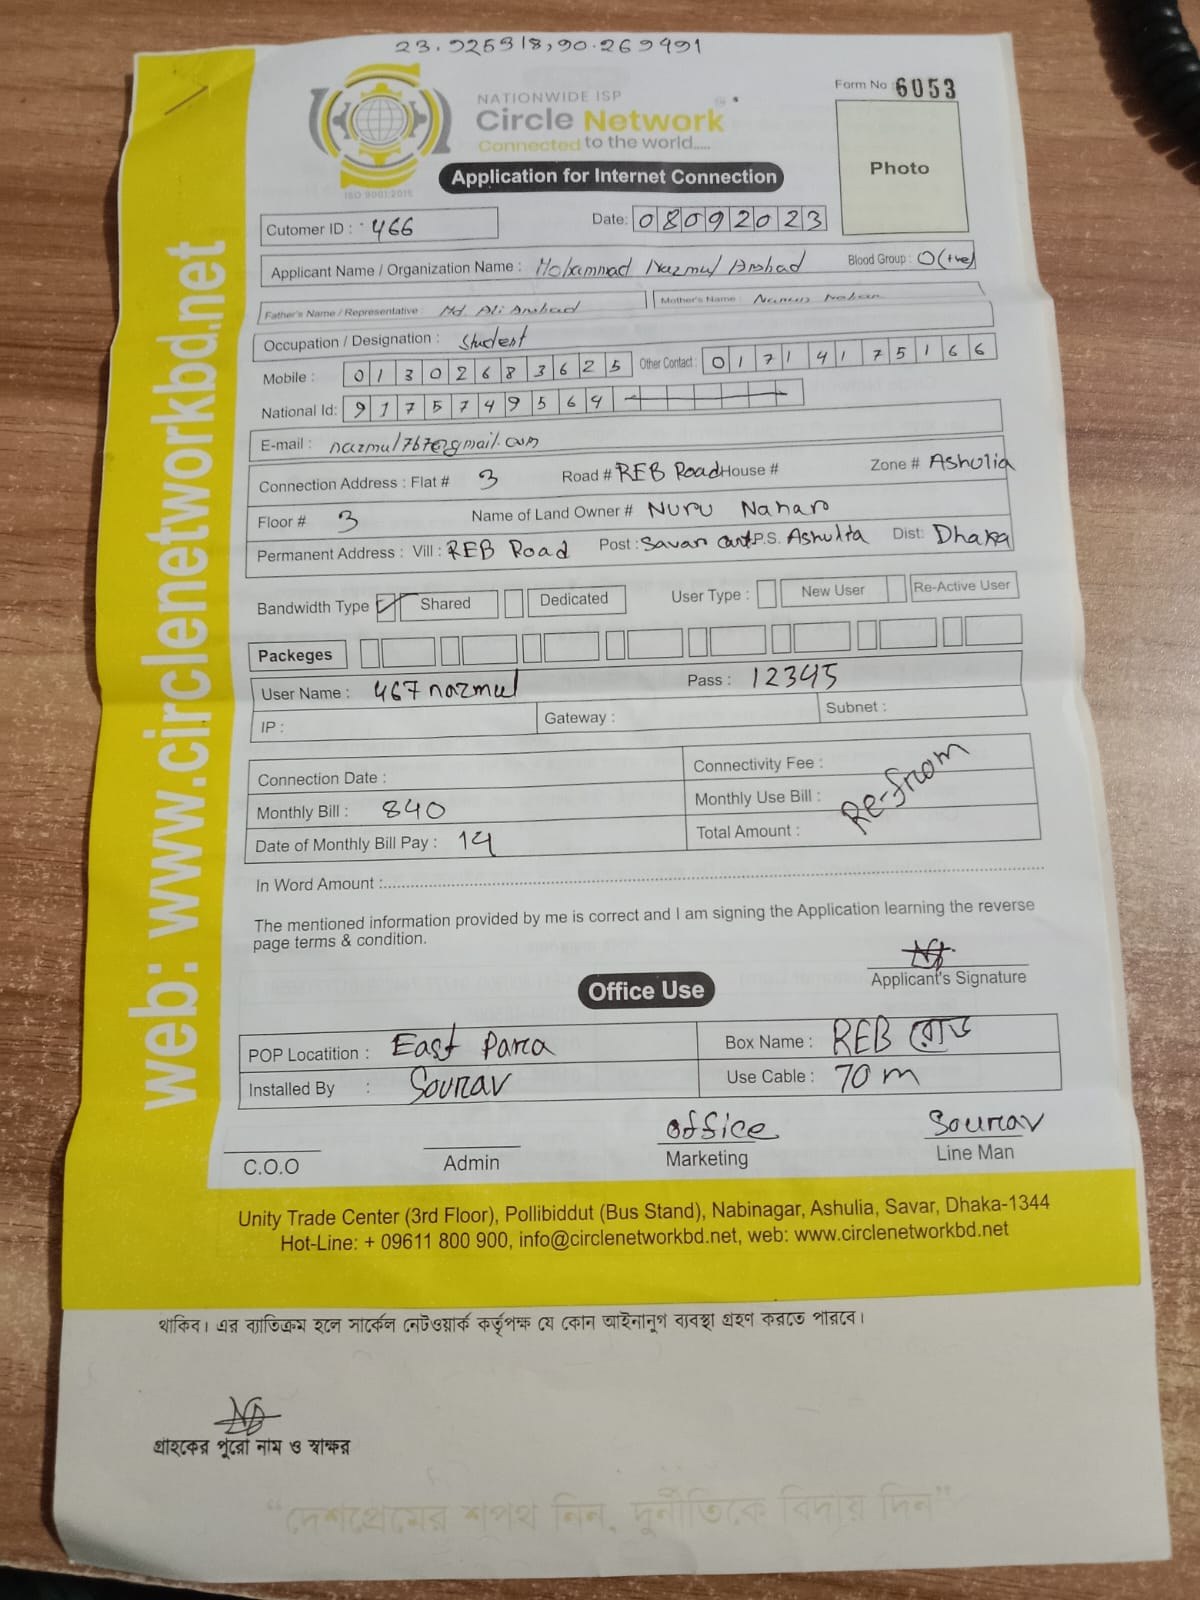 23.925918,90.269491
Form No 6053
NATIONWIDE ISP
Circle Network
Connected to the world.....
ISO 9001:2015
Application for Internet Connection
Photo
Cutomer ID : 466 Date: 08092023
Applicant Name / Organization Name : Mohammad Nazmul Arshad Blood Group : O(+ve)
Father's Name / Representative : Md Ali Arshad Mother's Name : Nahar
Occupation / Designation : Student
Mobile : 01302683625 Other Contact : 01714175166
National Id: 9175749564
E-mail : nazmul767@gmail.com
Connection Address : Flat # 3 Road # REB Road House # Zone # Ashulia
Floor # 3 Name of Land Owner # Nuru Nahar
Permanent Address : Vill : REB Road Post : Savar cant P.S. Ashulia Dist: Dhaka
Bandwidth Type Shared Dedicated User Type : New User Re-Active User
Packeges
User Name : 467nazmul Pass : 12345
IP : Gateway : Subnet :
Connection Date : Connectivity Fee :
Monthly Bill : 840 Monthly Use Bill : Re-from
Date of Monthly Bill Pay : 14 Total Amount :
In Word Amount :
The mentioned information provided by me is correct and I am signing the Application learning the reverse
page terms & condition.
Applicant's Signature
Office Use
POP Locatition : East Para Box Name : REB রোড
Installed By : Sourav Use Cable : 70 m
office Sourav
C.O.O Admin Marketing Line Man
Unity Trade Center (3rd Floor), Pollibiddut (Bus Stand), Nabinagar, Ashulia, Savar, Dhaka-1344
Hot-Line: + 09611 800 900, info@circlenetworkbd.net, web: www.circlenetworkbd.net
web: www.circlenetworkbd.net
থাকিব। এর ব্যাতিক্রম হলে সার্কেল নেটওয়ার্ক কর্তৃপক্ষ যে কোন আইনানুগ ব্যবস্থা গ্রহণ করতে পারবে।
গ্রাহকের পুরো নাম ও স্বাক্ষর
“দেশপ্রেমের শপথ নিন, দুর্নীতিকে বিদায় দিন”